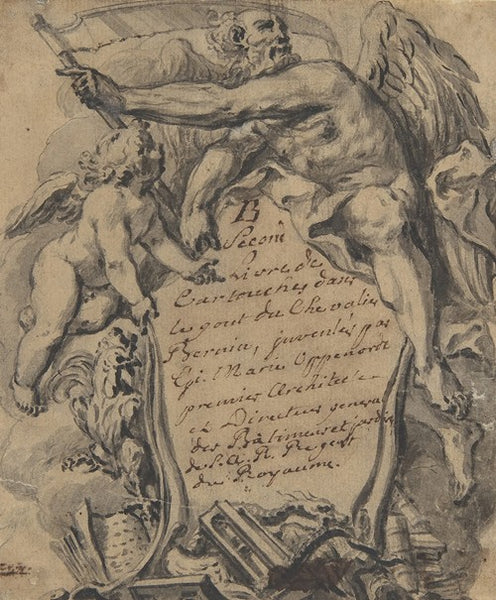 B
Second
Livre de
Cartouches dans
le gout du Chevalier
Bernin, inventés par
Gil. Marie Oppenordt
premier Architecte
et Directeur general
des Bâtimens et jardins
de S. A. R. Regent
du Royaume.